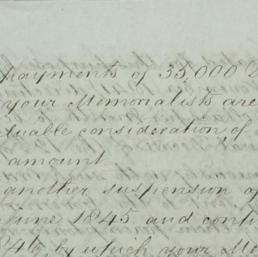 payments of 35,000 D
your Memorialists are
luable consideration of
amount
another suspension of
June 1845 and conti
by which your Me